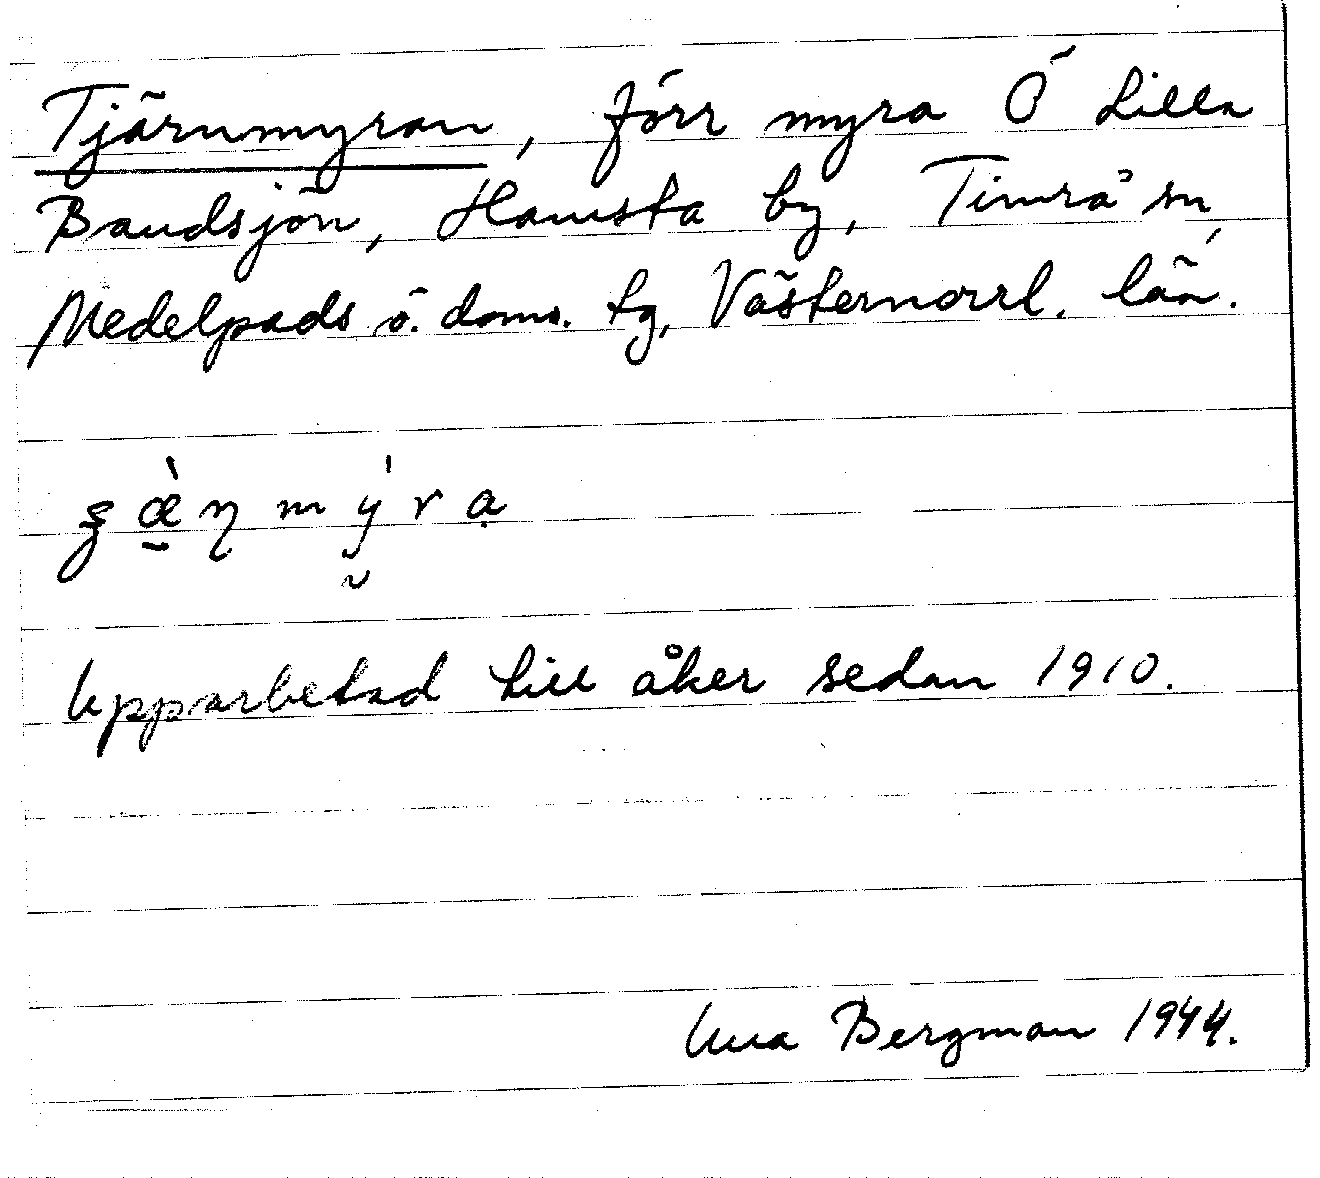 Tjärnmyran, förr myra Ö Lilla
Bandsjön, Hamsta by, Timrå sn,
Medelpads ö. doms. tg, Västernorrl. län.
Upparbetad till åker sedan 1910.
Una Bergman 1944.